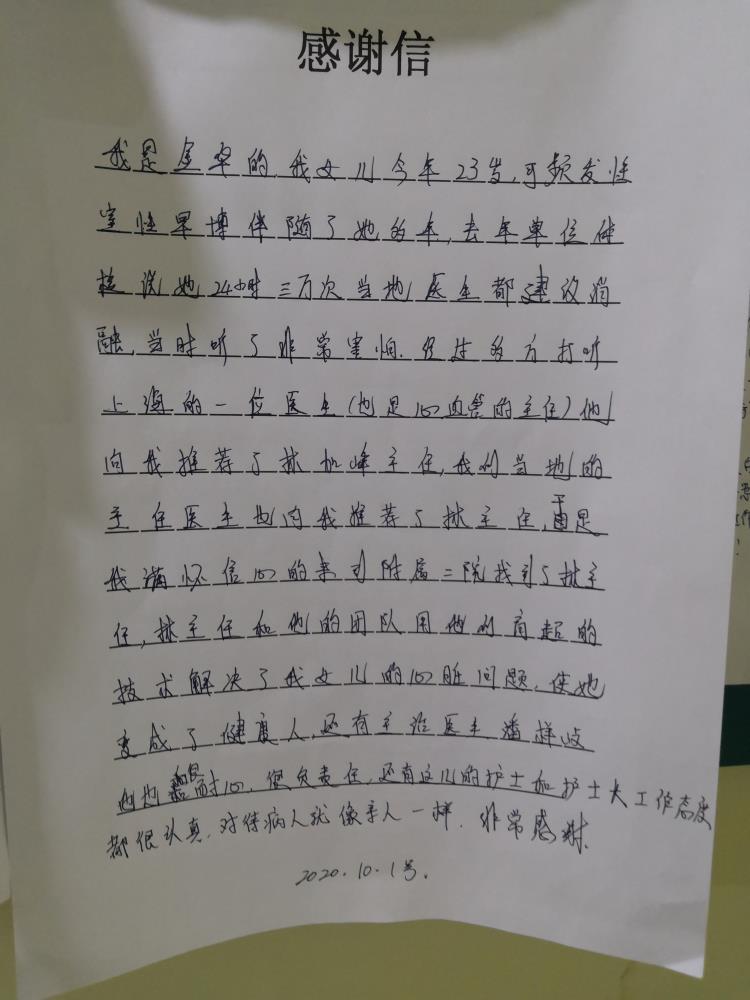 感谢信
我是金华的,我女儿今年23岁,可频发性
室性早搏伴随了她多年,去年单位体
检说她24小时三万次当地医生都建议消
融,当时听了非常害怕.经过多方打听
上海的一位医生(也是心血管的主任)他
向我推荐了林加峰主任,我们当地的
主任医生也向我推荐了林主任,于是
我满怀信心的来到附属二院找到了林主
任,林主任和他的团队用他们高超的
技术解决了我女儿的心脏问题,使她
变成了健康人,还有主治医生潘
他也很耐心,很负责任,还有这儿的护士和护士长工作态度
都很认真.对待病人就像亲人一样.非常感谢.
2020.10.1号.